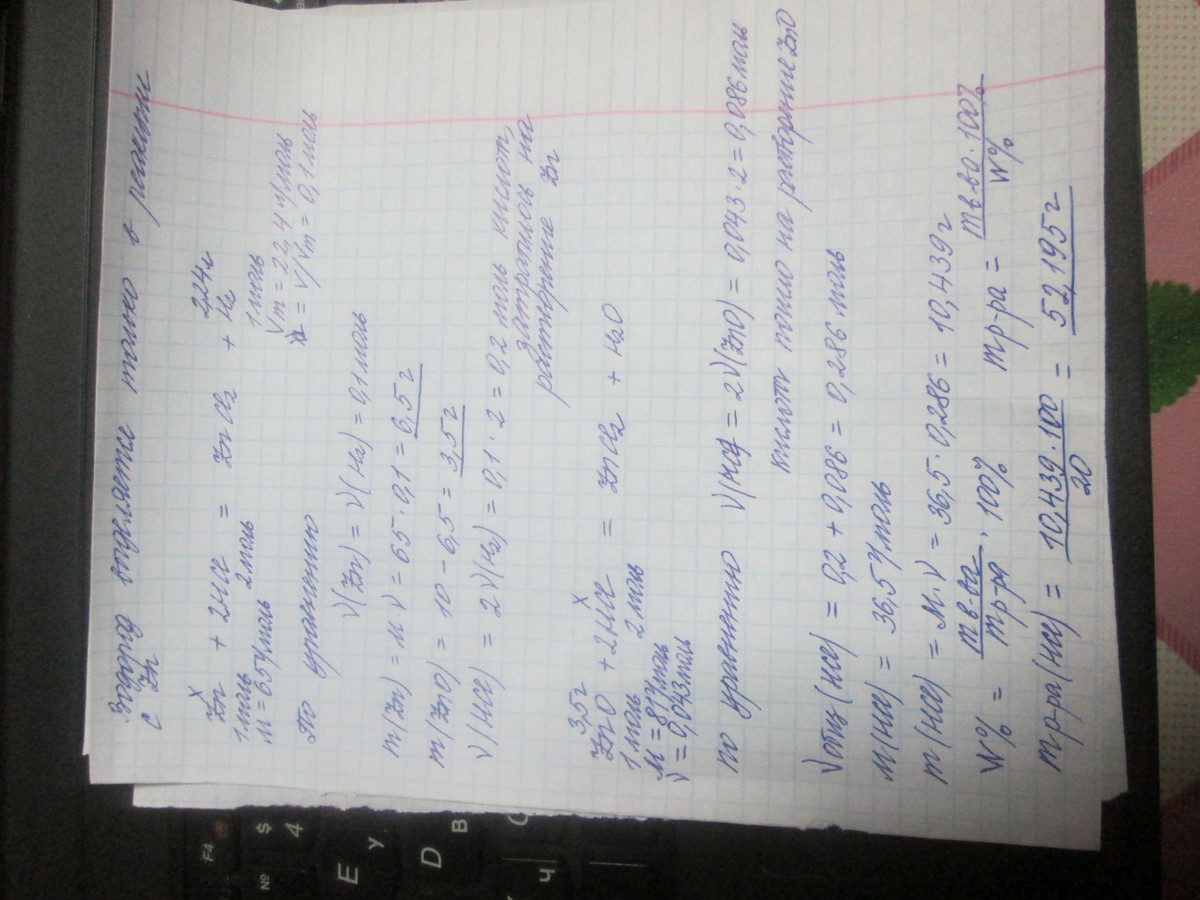 Водород выделяется только в реакции
с Zn
x 2,24л
Zn + 2HCl = ZnCl₂ + H₂
1 моль 2 моль 1 моль
M = 65 г/моль Vm = 22,4 л/моль
ν = V/Vm = 0,1 моль
По уравнению
ν(Zn) = ν(H₂) = 0,1 моль
m(Zn) = M ν = 65 · 0,1 = 6,5 г
m(ZnO) = 10 - 6,5 = 3,5 г
ν(HCl) = 2ν(H₂) = 0,1 · 2 = 0,2 моль кислот,
затратилось на
растворение Zn
3,5г x
ZnO + 2HCl = ZnCl₂ + H₂O
1 моль 2 моль
M = 81 г/моль
ν = 0,043 моль
по уравнению ν(HCl) = 2ν(ZnO) = 0,043 · 2 = 0,086 моль
кислоты пошло на растворение ZnO
νобщ(HCl) = 0,2 + 0,086 = 0,286 моль
M(HCl) = 36,5 г/моль
m(HCl) = M · ν = 36,5 · 0,286 = 10,439 г
W% = mв-ва/mр-ра · 100% mр-ра = mв-ва · 100%/W%
mр-ра(HCl) = 10,439 · 100/20 = 52,195 г
F4
№ $ 4
E У
D В
Ч